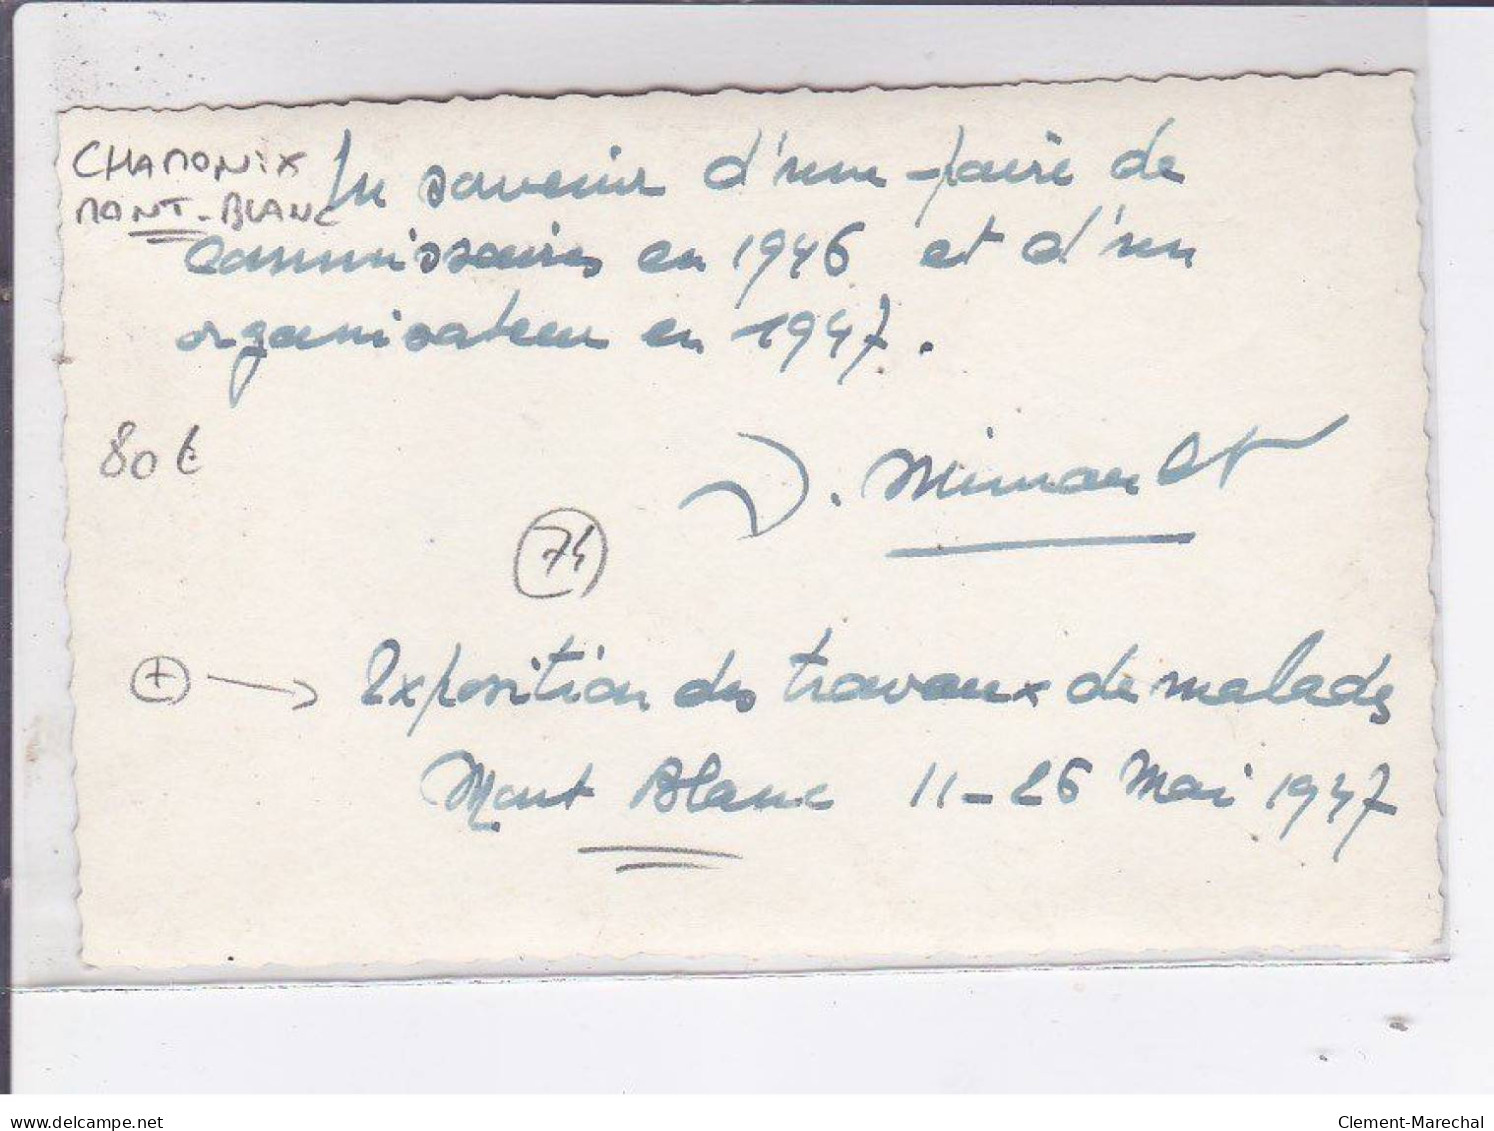 CHAMONIX
MONT-BLANC
En souvenir d'une paire de
commissaires en 1946 et d'un
organisateur en 1947.
80€
D. Minault
74
+ → Exposition des travaux de malades
Mont Blanc 11-26 Mai 1947
delcampe.net
Clement-Marechal